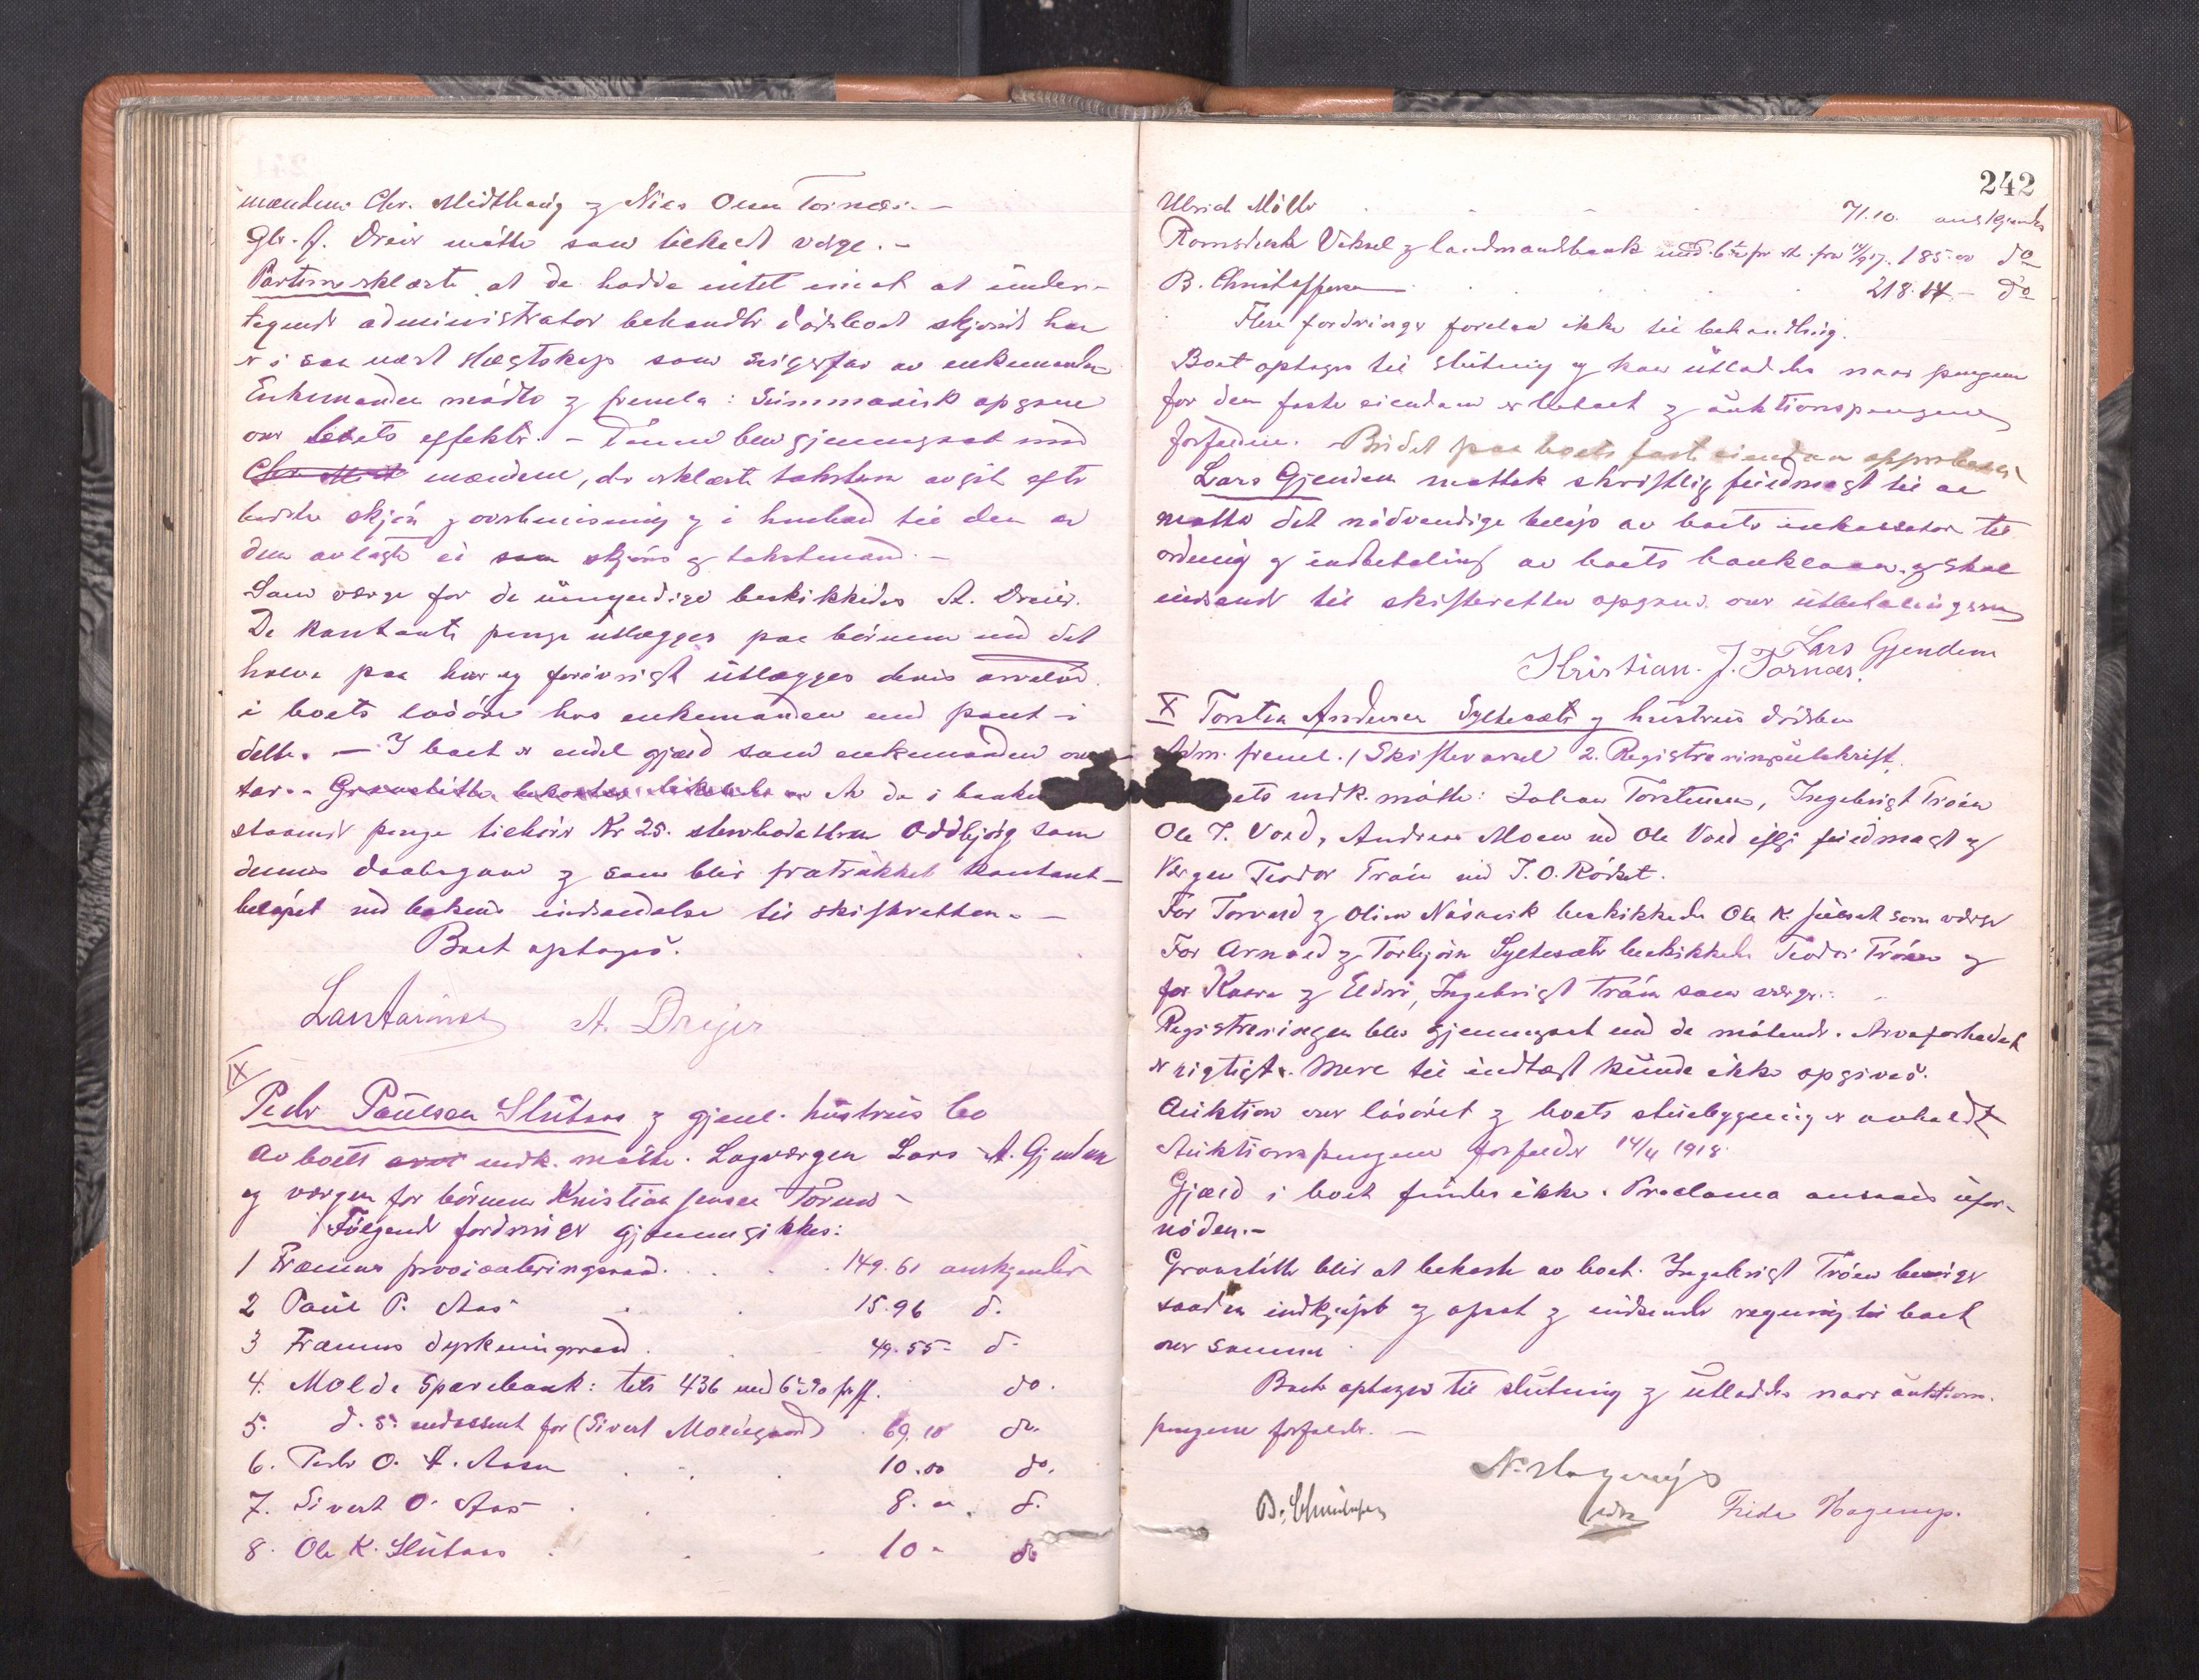 mændene Chr. Midthaug og Nies Olsen Tornæs. -
Gbr. J. Dreier møtte som værge. -
Parterne erklærte at de hadde intet imot at under-
tegnede administrator behandler dødsboet skjønt han
er i saa nært slægtskap som svigerfar av enkemanden
Enkemanden mødte og fremla: Summarisk opgave
over boets effekter. - Denne blev gjennemgaat med
mændene, de erklærte taksten avgit efter
bedste skjøn og overbevisning og i henhold til den av
dem avlagte ed som skjøns og takstmænd. -
Som værge for de umyndige beskikkedes A. Dreier.
De kontante penge utlægges paa børnene med det
halve paa hver og forøvrigt utlægges deres arvelod
i boets løsøre hos enkemanden med pant i
dette. - I boet er endel gjæld som enkemanden over-
tar. - Gravstøtte bekostes At de i banken
staaende penge tilhører Kr 25. Oddbjørg som
dennes daabsgave og som blir fratrukket kontant-
beløpet ved bokens indsendelse til skifteretten. -
Boet optages.
Lars Aarønes A. Drejer
IX
Peder Paulsen Slutaas og gjenl. hustrus bo
Av boets vedk. møtte. Lagværgen Lars A. Gjendem
og værgen for børnene Kristian Jensen Tornes -
Følgende fordringer gjennemgikkes:
1 Frænens provianteringsraad . . . 149.61 anerkjendes
2 Paul P. Aas . . 15.96 d.
3 Frænens dyrkningsraad . . 49.55 - d -
4. Molde Sparebank: 436 med 6 % do.
5. d. s. endossent for (Sivert Moldegaard) . 69.10 do.
6. Peder O. A. Aasen . . . 10.00 do.
7. Sivert O. Aas . . 8. - d.
8. Ole K. Slutaas . . . 10 - do
242
Ulrich Møller . . . 71.10. anerkjendes
Romsdalske Veksel og landmandsbank 185.00 do
B. Christoffersen . . . 218.14 - do
Flere fordringer forelaa ikke til behandling.
Boet optages til slutning og kan utloddes naar pengene
for den faste eiendom er betalt og auktionspengene
forfaldne. - Budet paa boets faste eiendom approberes
Lars Gjendem mottok skriftlig fuldmagt til at
motta det nødvendige beløp av boets inkassator til
ordning og indbetaling av boets banklaan og skal
indsende til skifteretten opgave over utbetalingerne
Lars Gjendem
Kristian. J. Tornæs.
X Torsten Andersen Syltesæter og hustrus dødsbo
Adm. freml. 1 Skiftevarsel 2. Registreringsutskrift.
boets vedk. møtte: Johan Torstensen, Ingebrigt Trøen
Ole T. Vold, Andreas Moen ved Ole Vold ifølge fuldmagt og
Værgen Teodor Trøen ved J. O. Rødset.
For Torvald og Oline Næsvik beskikkedes Ole K. Julset som værge
For Arnold og Torbjørn Syltesæter beskikkedes Teodor Trøen og
for Kaare og Eldri, Ingebrigt Trøen som værge. -
Registreringen blev gjennemgaat med de møtende. Arveforholdet
er rigtigt. Mere til indtægt kunde ikke opgives.
Auktion over løsøret og boets stuebygning er avholdt
Auktionspengene forfalder 14/4 1918.
Gjæld i boet findes ikke. Proclama ansaaes ufor-
nøden. -
Gravstøtte blir at bekoste av boet. Ingebrigt Trøen besørger
saadan indkjøpt og opsat og indsender regning til boet
over samme
Boet optages til slutning og utloddes naar auktions-
pengene forfalder. -
N. Hagerup
B. Christoffersen Frida Hagerup.